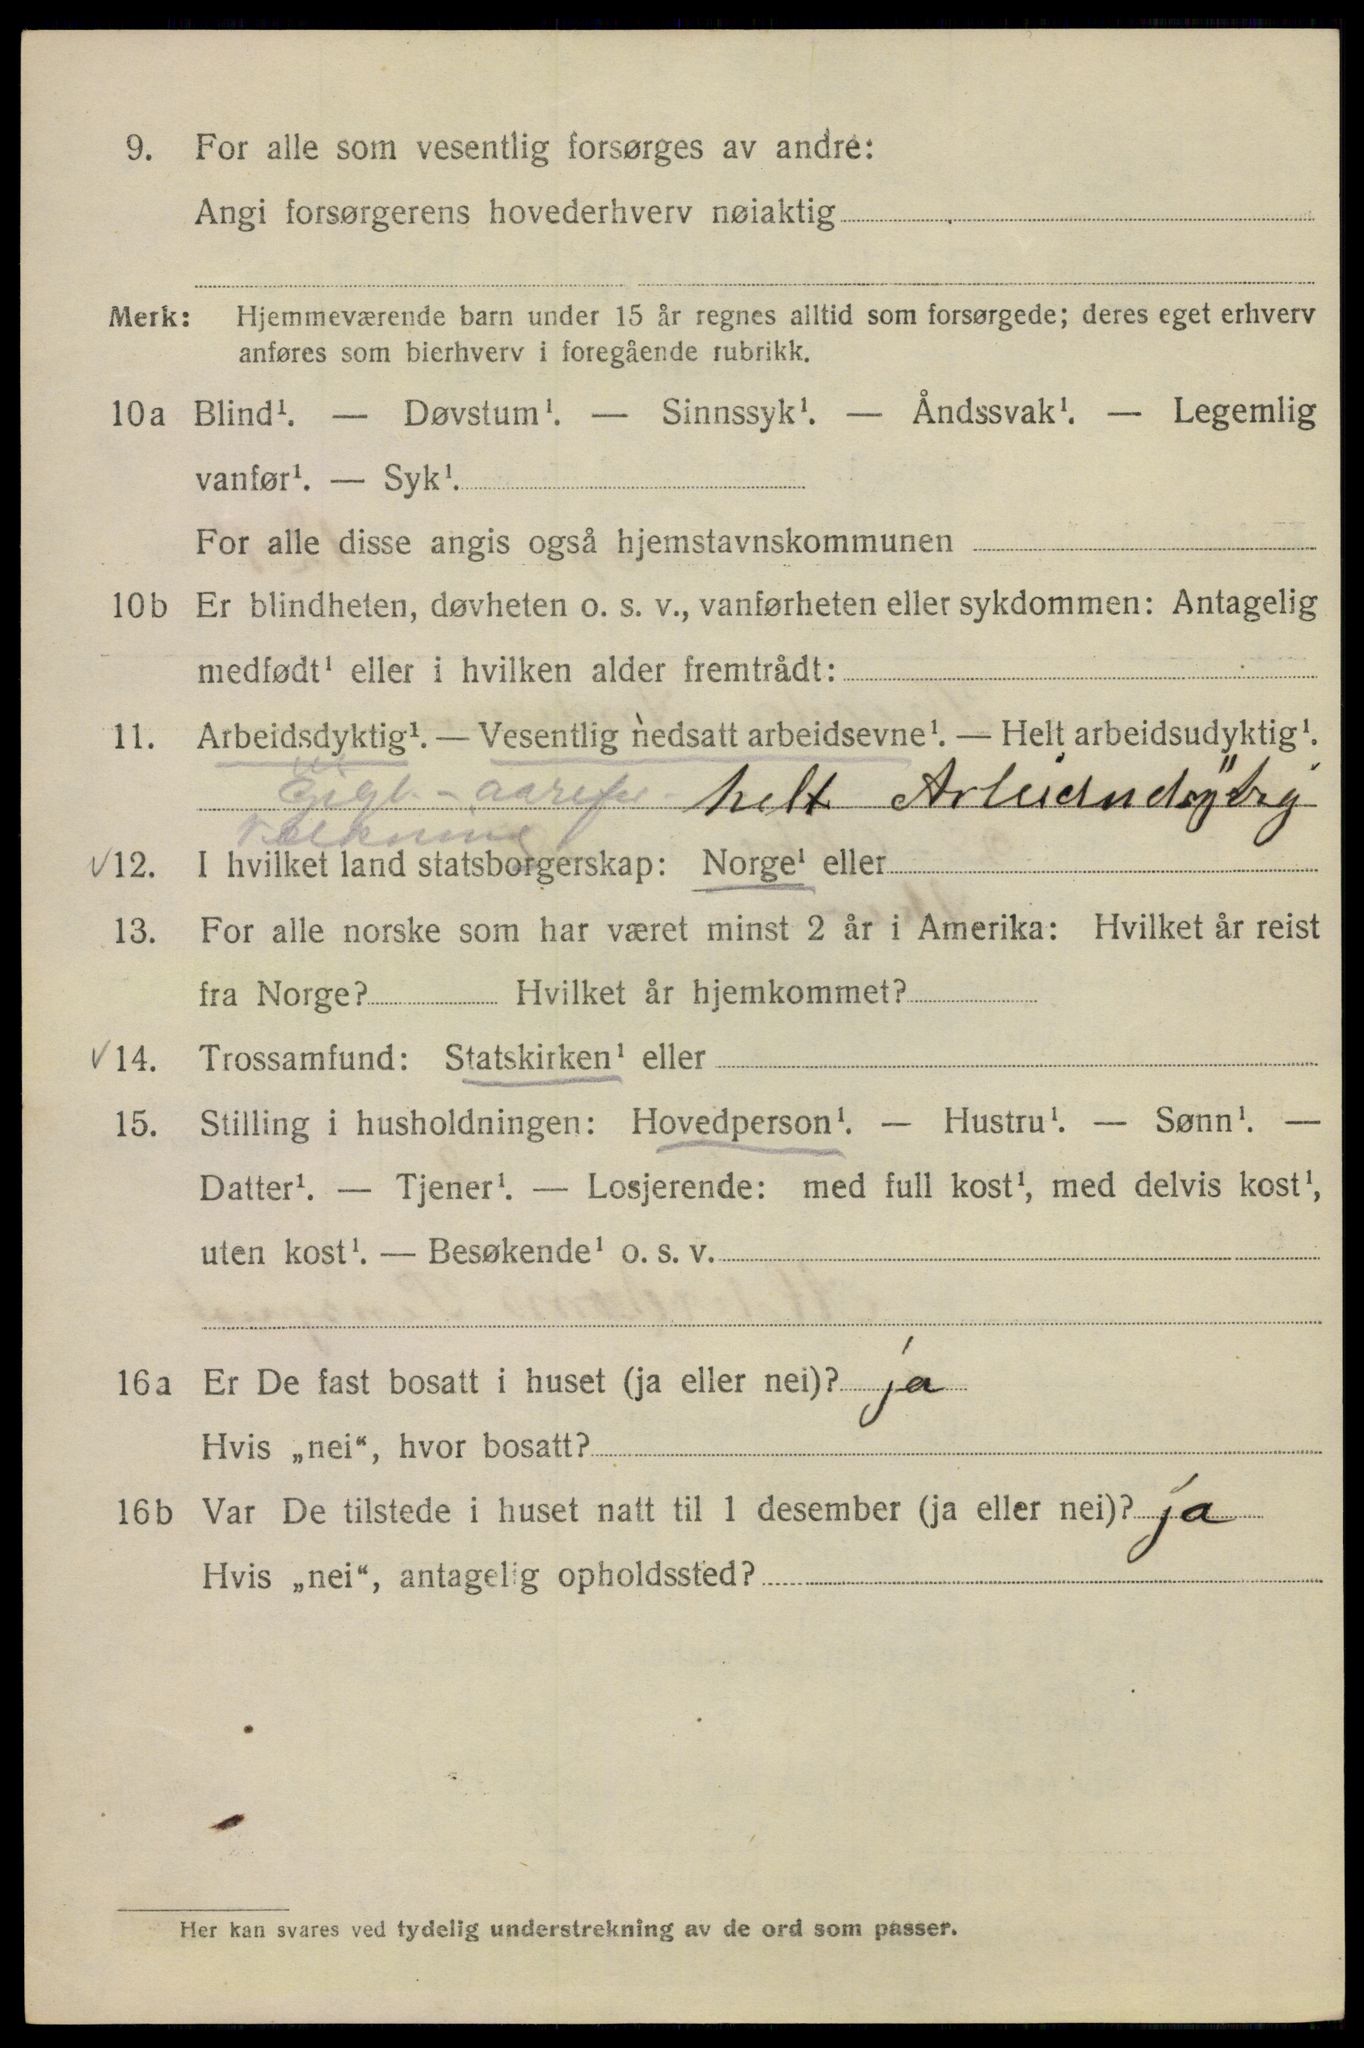 9. For alle som vesentlig forsørges av andre:
Angi forsørgerens hovederhverv nøiaktig
Merk: Hjemmeværende barn under 15 år regnes alltid som forsørgede; deres eget erhverv
anføres som bierhverv i foregående rubrikk.
10a Blind¹. — Døvstum¹. — Sinnssyk¹. — Åndssvak¹. — Legemlig
vanfør¹. — Syk¹.
For alle disse angis også hjemstavnskommunen
10b Er blindheten, døvheten o. s. v., vanførheten eller sykdommen: Antagelig
medfødt¹ eller i hvilken alder fremtrådt:
11. Arbeidsdyktig¹. — Vesentlig nedsatt arbeidsevne¹. — Helt arbeidsudyktig¹.
helt
√12. I hvilket land statsborgerskap: Norge¹ eller
13. For alle norske som har været minst 2 år i Amerika: Hvilket år reist
fra Norge? Hvilket år hjemkommet?
√14. Trossamfund: Statskirken¹ eller
15. Stilling i husholdningen: Hovedperson¹. — Hustru¹. — Sønn¹. —
Datter¹. — Tjener¹. — Losjerende: med full kost¹, med delvis kost¹,
uten kost¹. — Besøkende¹ o. s. v.
16a Er De fast bosatt i huset (ja eller nei)? ja
Hvis „nei“, hvor bosatt?
16b Var De tilstede i huset natt til 1 desember (ja eller nei)? ja
Hvis „nei“, antagelig opholdssted?
Her kan svares ved tydelig understrekning av de ord som passer.